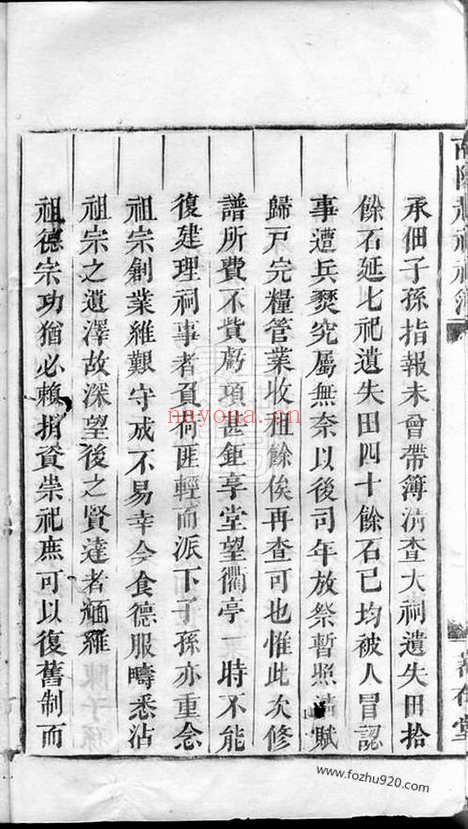 承佃子孫指報未曾帶簿清查大祠遺失田拾
餘石延七祀遺失田四十餘石已均被人冒認
事遭兵燹究屬無奈以後司年放祭暫照沾賦
歸戶完糧管業收租餘俟再查可也惟此次修
譜所費不貲虧項甚鉅享堂望衢亭一時不能
復建理祠事者負荷匪輕而派下子孫亦重念
祖宗創業維艱守成不易幸今食德服疇悉沾
祖宗之遺澤故深望後之賢達者緬維
祖德宗功猶必賴捐資崇祀庶可以復舊制而
nayona.cn
www.fozhu920.com